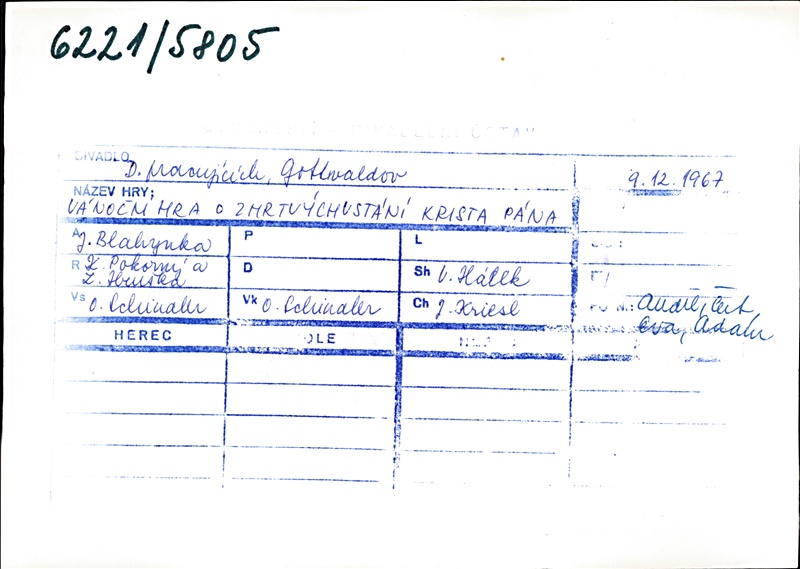 6221/5805
DIVADELNÍ ÚSTAV
DIVADLO D. pracujících, Gottwaldov
9.12.1967
NÁZEV HRY:
VÁNOČNÍ HRA O ZMRTVÝCHVSTÁNÍ KRISTA PÁNA
A J. Blahynka P L
R K. Pokorný a D Sh V. Hálek
Z. Hruška
Vs O. Schindler Vk O. Schindler Ch J. Kriesl
POZN.: Anděl, čert
Eva, Adam
HEREC ROLE